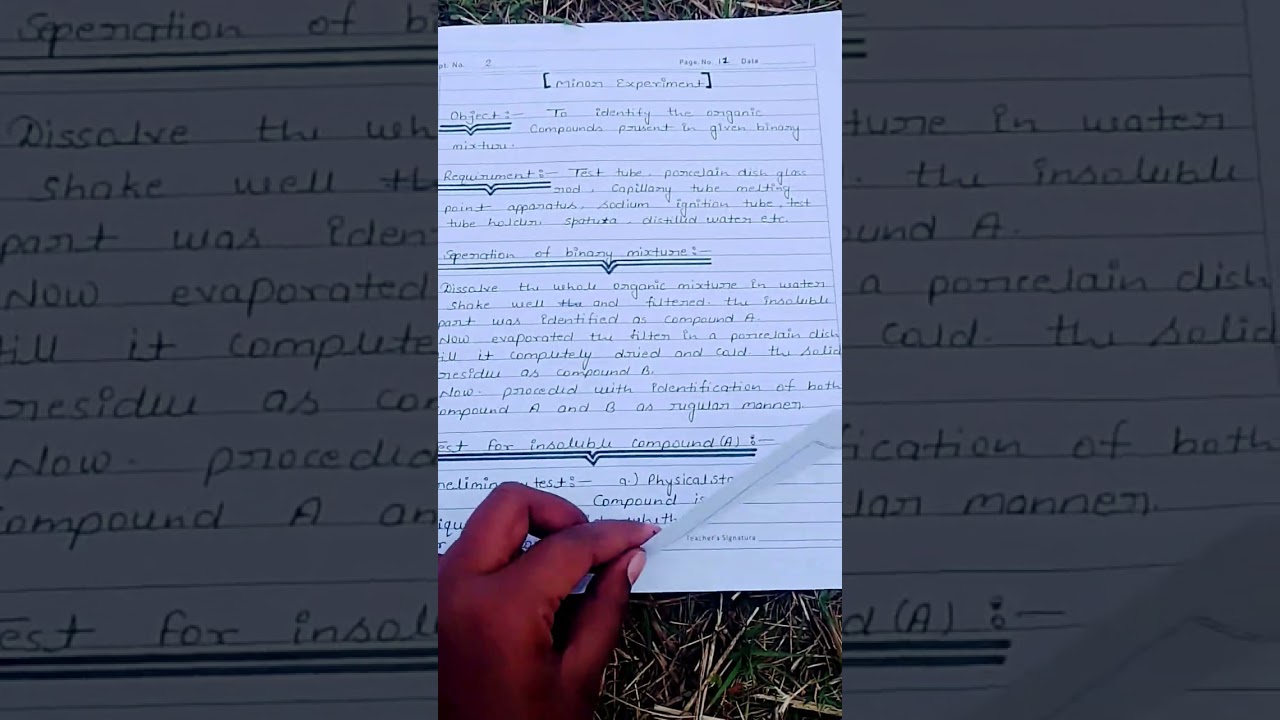 pt. No. 2 Page. No. 11 Date
[Minor Experiment]
Object :- To identify the organic
Compounds present in given binary
mixture.
Requirment :- Test tube, porcelain dish glass
rod, Capillary tube melting
point apparatus, sodium ignition tube, test
tube holder, spatuxa, distilled water etc.
Speration of binary mixture :-
Dissolve the whole organic mixture in water
shake well the and filtered. the insoluble
part was identified as compound A.
Now evaporated the filter in a porcelain dish
till it completely dried and cold. the solid
residue as compound B.
Now. proceded with identification of both
compound A and B as rugular manner.
Test for insoluble compound (A) :-
a.) Physical
Compound is
Teacher's Signature